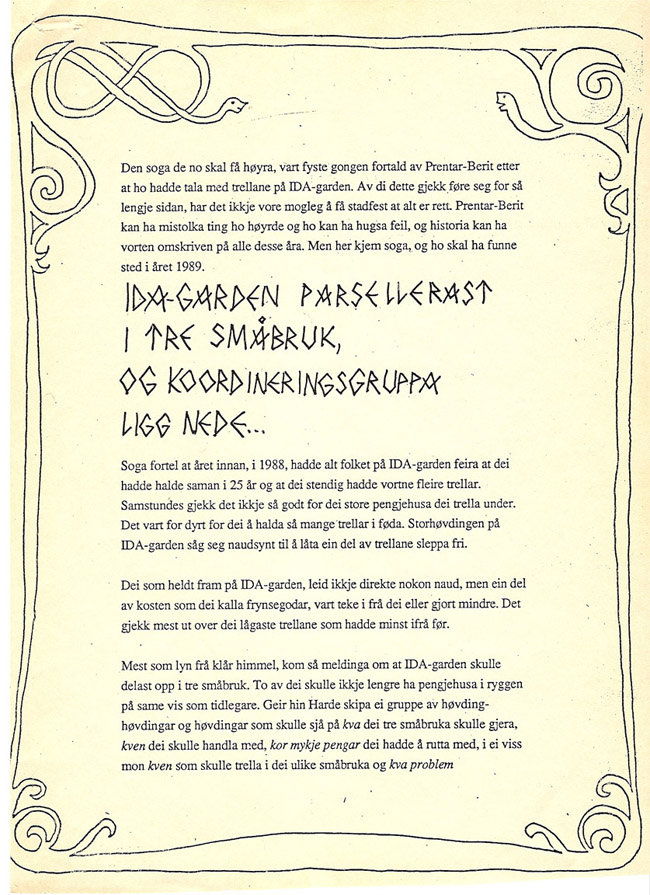 Den soga de no skal få høyra, vart fyste gongen fortald av Prentar-Berit etter
at ho hadde tala med trellane på IDA-garden. Av di dette gjekk føre seg for så
lengje sidan, har det ikkje vore mogleg å få stadfest at alt er rett. Prentar-Berit
kan ha mistolka ting ho høyrde og ho kan ha hugsa feil, og historia kan ha
vorten omskriven på alle desse åra. Men her kjem soga, og ho skal ha funne
sted i året 1989.
IDA-GARDEN PARSELLERAST
I TRE SMÅBRUK,
OG KOORDINERINGSGRUPPA
LIGG NEDE...
Soga fortel at året innan, i 1988, hadde alt folket på IDA-garden feira at dei
hadde halde saman i 25 år og at dei stendig hadde vortne fleire trellar.
Samstundes gjekk det ikkje så godt for dei store pengjehusa dei trella under.
Det vart for dyrt for dei å halda så mange trellar i føda. Storhøvdingen på
IDA-garden såg seg naudsynt til å låta ein del av trellane sleppa fri.
Dei som heldt fram på IDA-garden, leid ikkje direkte nokon naud, men ein del
av kosten som dei kalla frynsegodar, vart teke i frå dei eller gjort mindre. Det
gjekk mest ut over dei lågaste trellane som hadde minst ifrå før.
Mest som lyn frå klår himmel, kom så meldinga om at IDA-garden skulle
delast opp i tre småbruk. To av dei skulle ikkje lengre ha pengjehusa i ryggen
på same vis som tidlegare. Geir hin Harde skipa ei gruppe av høvding-
høvdingar og høvdingar som skulle sjå på kva dei tre småbruka skulle gjera,
kven dei skulle handla med, kor mykje pengar dei hadde å rutta med, i ei viss
mon kven som skulle trella i dei ulike småbruka og kva problem